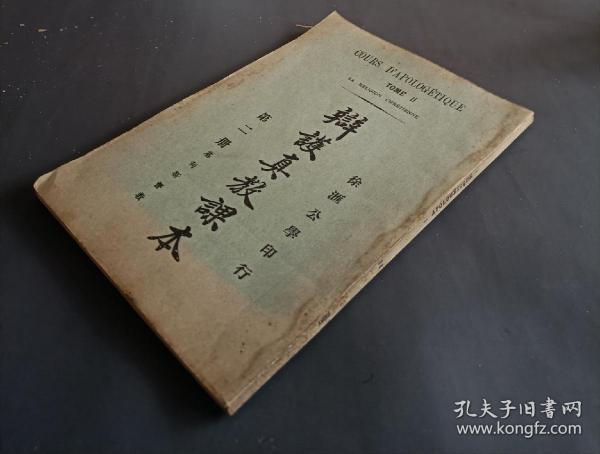 COURS D'APOLOGÉTIQUE
TOME II
LA RELIGION CHRÉTIENNE
辯護真教課本
第二册
徐滙公學印行
APOLOGÉTIQUE
孔夫子旧书网
www.kongfz.com